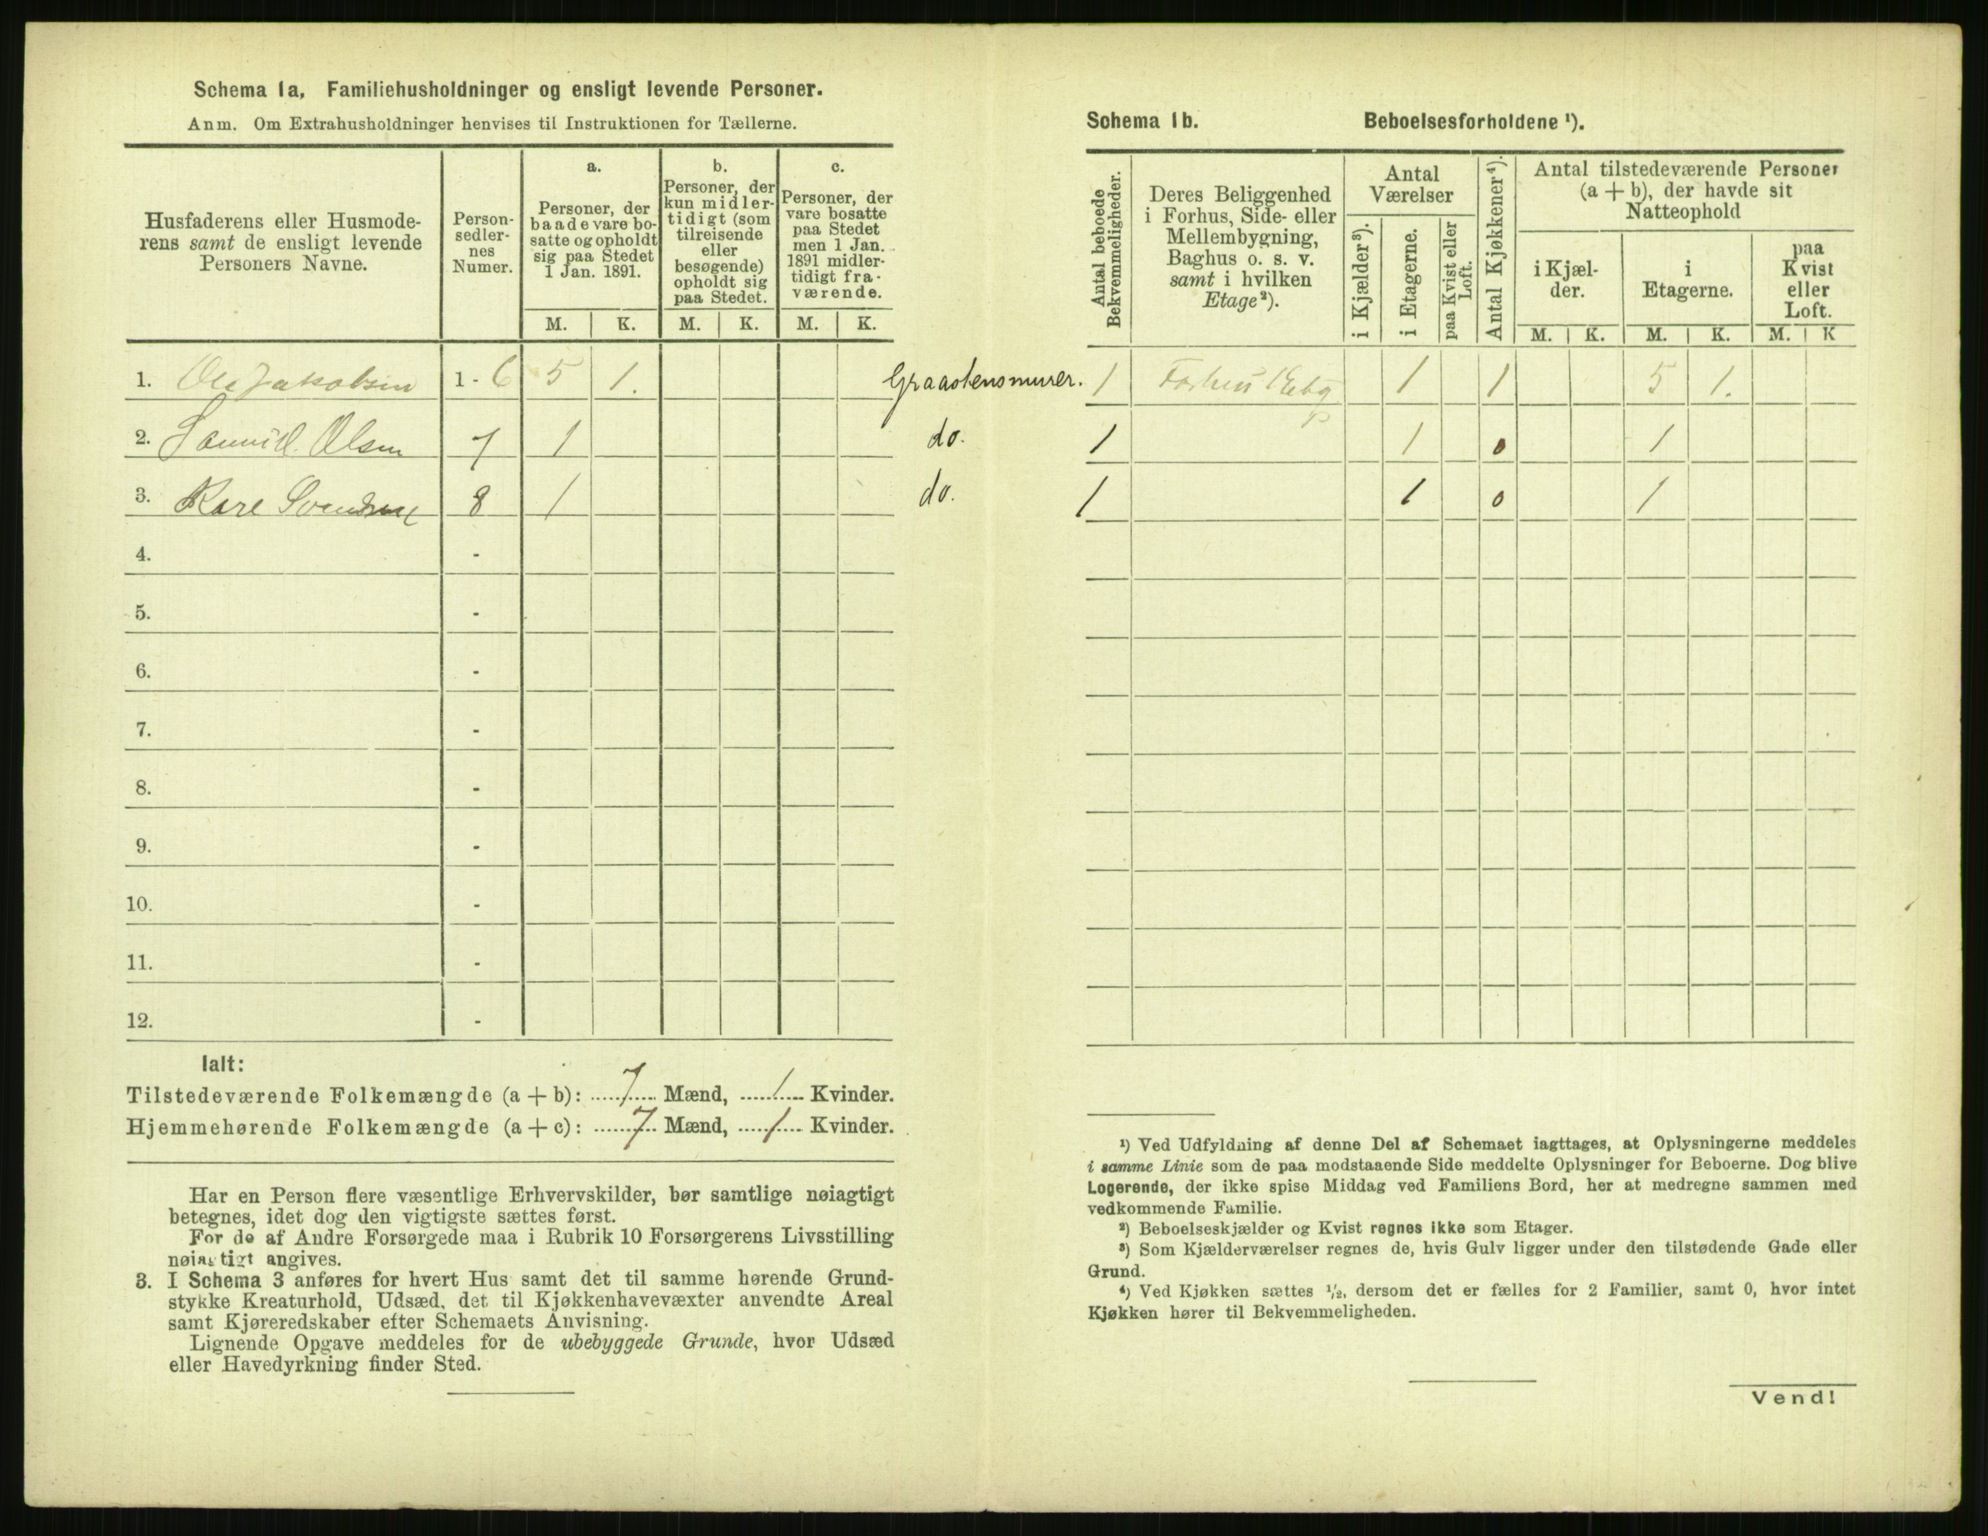 Schema 1a. Familiehusholdninger og ensligt levende Personer.
Anm. Om Extrahusholdninger henvises til Instruktionen for Tællerne.
Husfaderens eller Husmode-
rens samt de ensligt levende
Personers Navne.
Person-
sedler-
nes
Numer.
a.
Personer, der
baade vare bo-
satte og opholdt
sig paa Stedet
1 Jan. 1891.
b.
Personer, der
kun midler-
tidigt (som
tilreisende
eller
besøgende)
opholdt sig
paa Stedet.
c.
Personer, der
vare bosatte
paa Stedet
men 1 Jan.
1891 midler-
tidigt fra-
værende.
M. K. M. K. M. K.
1. Ole Jakobsen 1 - 6 5 1. Graastensmurer.
2. Samuel Olsen 7 1 do.
3. Kare Svendsen 8 1 do.
4. -
5. -
6. -
7. -
8. -
9. -
10. -
11. -
12. -
Ialt:
Tilstedeværende Folkemængde (a + b): 7 Mænd, 1 Kvinder.
Hjemmehørende Folkemængde (a + c): 7 Mænd, 1 Kvinder.
Har en Person flere væsentlige Erhvervskilder, bør samtlige nøiagtigt
betegnes, idet dog den vigtigste sættes først.
For de af Andre Forsørgede maa i Rubrik 10 Forsørgerens Livsstilling
nøiagtigt angives.
3. I Schema 3 anføres for hvert Hus samt det til samme hørende Grund-
stykke Kreaturhold, Udsæd, det til Kjøkkenhavevæxter anvendte Areal
samt Kjøreredskaber efter Schemaets Anvisning.
Lignende Opgave meddeles for de ubebyggede Grunde, hvor Udsæd
eller Havedyrkning finder Sted.
Schema 1b. Beboelsesforholdene ¹).
Antal beboede
Bekvemmeligheder.
Deres Beliggenhed
i Forhus, Side- eller
Mellembygning,
Baghus o. s. v.
samt i hvilken
Etage ²).
Antal
Værelser
i Kjælder ³).
i Etagerne.
paa Kvist eller
Loft.
Antal Kjøkkener ⁴).
Antal tilstedeværende Personer
(a + b), der havde sit
Natteophold
i Kjæl-
der.
i
Etagerne.
paa
Kvist
eller
Loft.
M. K. M. K. M. K
1 Forhus 1 1 5 1.
1 1 0 1
1 1 0 1
¹) Ved Udfyldning af denne Del af Schemaet iagttages, at Oplysningerne meddeles
i samme Linie som de paa modstaaende Side meddelte Oplysninger for Beboerne. Dog blive
Logerende, der ikke spise Middag ved Familiens Bord, her at medregne sammen med
vedkommende Familie.
²) Beboelseskjælder og Kvist regnes ikke som Etager.
³) Som Kjælderværelser regnes de, hvis Gulv ligger under den tilstødende Gade eller
Grund.
⁴) Ved Kjøkken sættes ½, dersom det er fælles for 2 Familier, samt 0, hvor intet
Kjøkken hører til Bekvemmeligheden.
Vend!